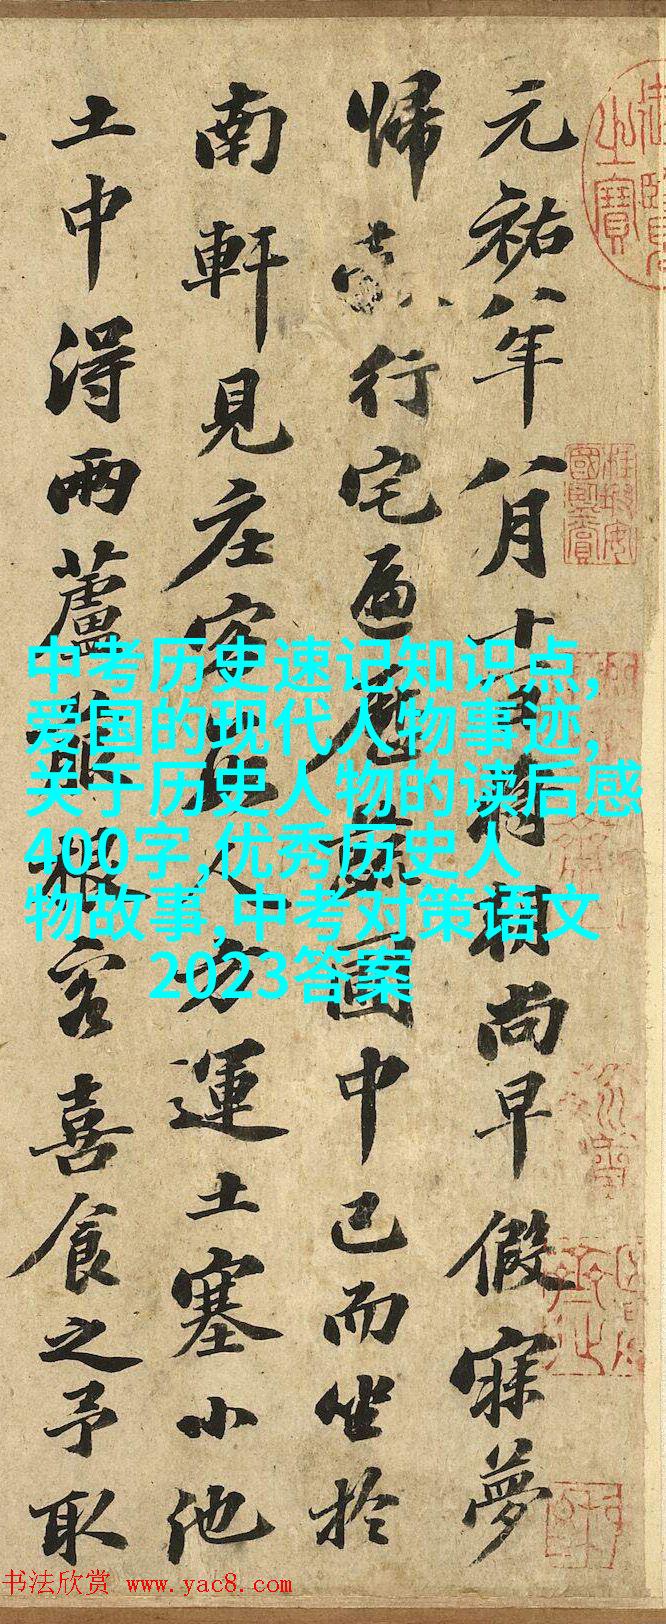 元祐八年八月十一日将朝尚早假寐夢
歸縠行宅遍歷蔬圃中已而坐於
南軒見庄客數人方運土塞小池
土中得兩蘆菔根客喜食之予取
中考历史速记知识点,
爱国的现代人物事迹,
关于历史人物的读后感
400字,优秀历史人
物故事,中考对策语文
2023答案
之寶
书法欣赏 www.yac8.com